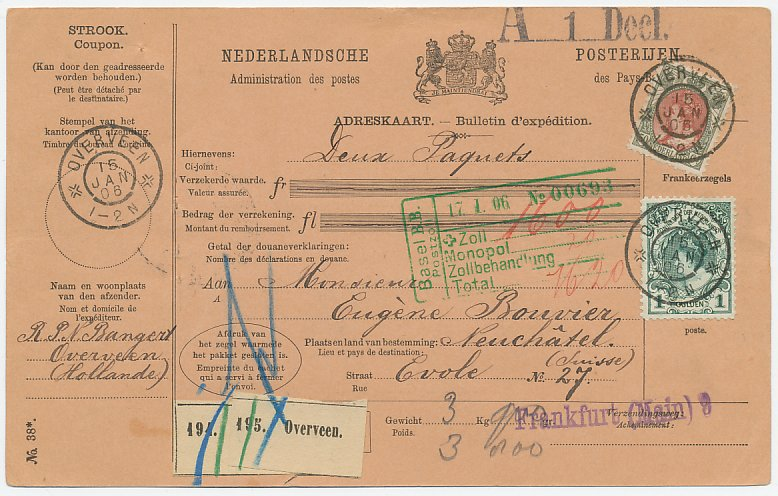 STROOK.
Coupon.
(Kan door den geadresseerde
worden behouden.)
(Peut être détaché par
le destinataire.)
Stempel van het
kantoor van afzending.
Timbre du bureau d'origine.
OVERVEEN
15
JAN
06
1-2 N
Naam en woonplaats
van den afzender.
Nom et domicile de
l'expéditeur.
R.P.N. Bangert
Overveen
(Hollande)
No. 38*.
A 1 Decl.
NEDERLANDSCHE
Administration des postes
JE MAINTIENDRAI
POSTERIJEN.
des Pays-B
OVERVEEN
15
JAN
06
ADRESKAART. — Bulletin d'expédition.
Hiernevens:
Ci-joint:
Deux Paquets
Verzekerde waarde.
Valeur assurée.
fr
Frankeerzegels
Bedrag der verrekening.
Montant du remboursement.
fl
Basel B.B.
Postzoll
17. 1. 06 No 00693
Zoll
Monopol
Zollbehandlung
Total
1600
20
1620
Getal der douaneverklaringen:
Nombre des déclarations en douane.
Aan
A
Monsieur
Eugène Bouvier
Plaats en land van bestemming:
Lieu et pays de destination:
Neuchâtel.
(Suisse)
Straat
Rue
Evole
No. 27.
OVERVEEN
15
JAN
1 GULDEN 1
poste.
Afdruk van
het zegel waarmede
het pakket gesloten is.
Empreinte du cachet
qui a servi à fermer
l'envoi.
194.
195. Overveen.
Gewicht
Poids.
3 Kg 900
3 200
Verzendingsweg:
Acheminement:
Frankfurt (Main) 9